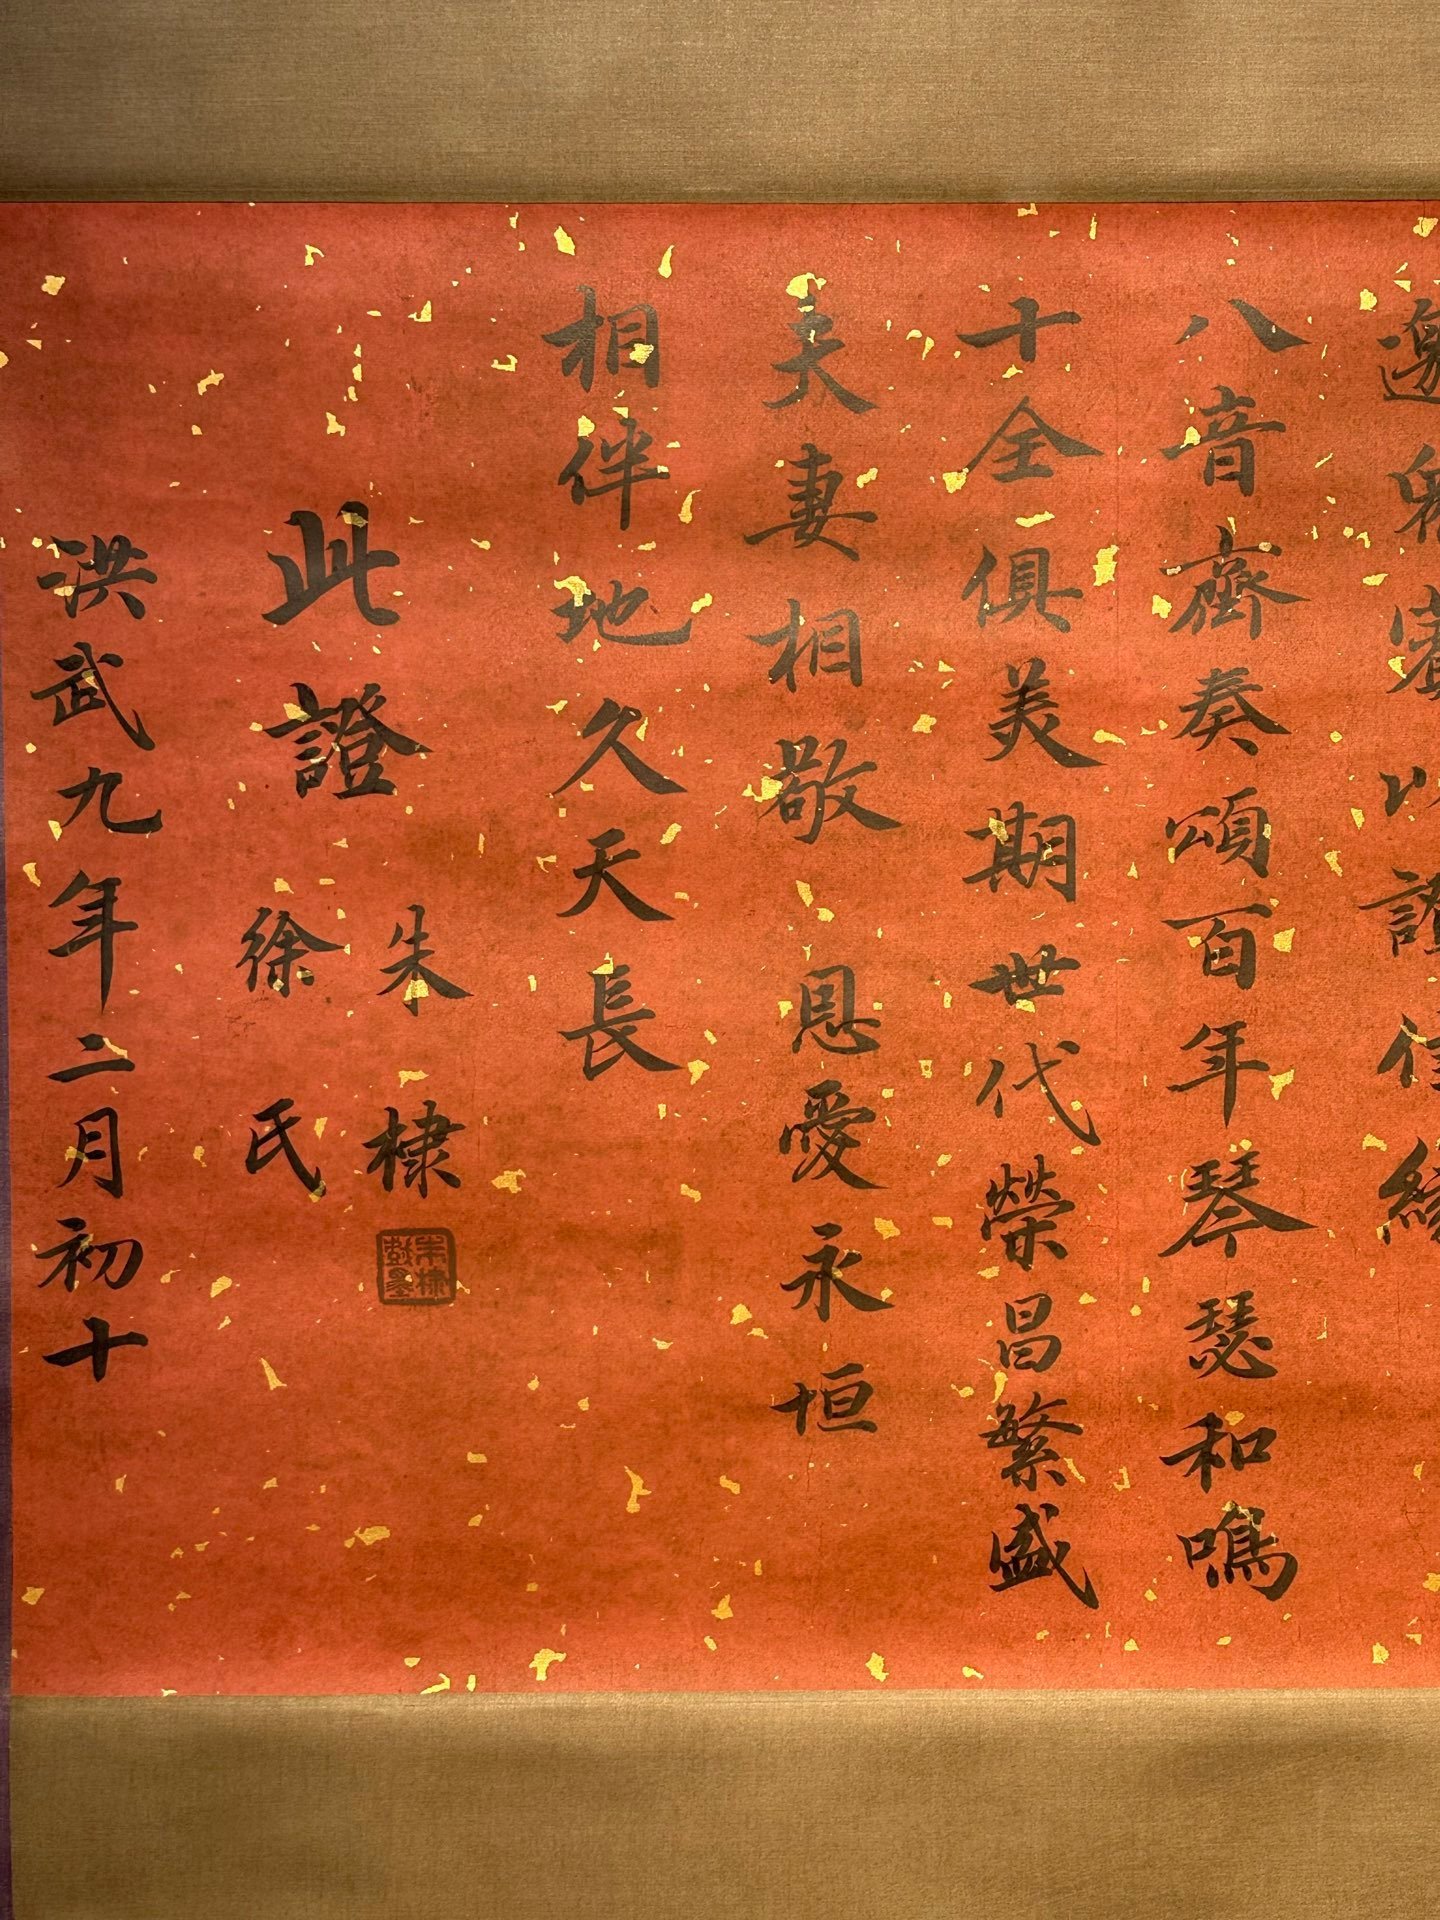 邀親賓以證信緣
八音齊奏頌百年琴瑟和鳴
十全俱美期世代榮昌繁盛
夫妻相敬恩愛永垣
相伴地久天長
此證
朱棣
徐氏
洪武九年二月初十